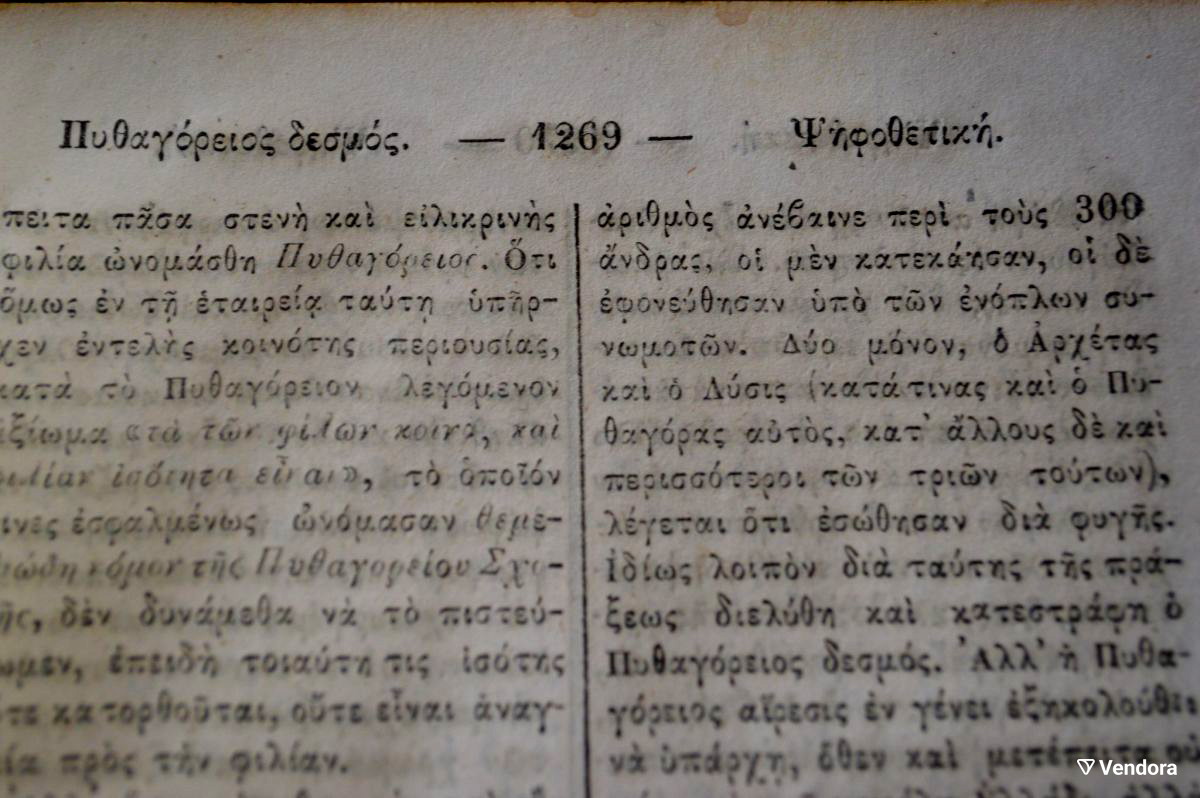 Πυθαγόρειος δεσμός. — 1269 — Ψηφοθετική.
πειτα πᾶσα στενὴ καὶ εἰλικρινὴς
φιλία ὠνομάσθη Πυθαγόρειος. Ὅτι
ὅμως ἐν τῇ ἑταιρείᾳ ταύτῃ ὑπῆρ-
χεν ἐντελὴς κοινότης περιουσίας,
κατὰ τὸ Πυθαγόρειον λεγόμενον
ἀξίωμα «τὰ τῶν φίλων κοινά, καὶ
φιλίαν ἰσότητα εἶναι», τὸ ὁποῖόν
τινες ἐσφαλμένως ὠνόμασαν θεμε-
λιώδη νόμον τῆς Πυθαγορείου Σχο-
λῆς, δὲν δυνάμεθα νὰ τὸ πιστεύ-
ωμεν, ἐπειδὴ τοιαύτη τις ἰσότης
οὔτε κατορθοῦται, οὔτε εἶναι ἀναγ-
καία πρὸς τὴν φιλίαν.
ἀριθμὸς ἀνέβαινε περὶ τοὺς 300
ἄνδρας, οἱ μὲν κατεκάησαν, οἱ δὲ
ἐφονεύθησαν ὑπὸ τῶν ἐνόπλων συ-
νωμοτῶν. Δύο μόνον, ὁ Ἀρχέτας
καὶ ὁ Λύσις (κατά τινας καὶ ὁ Πυ-
θαγόρας αὐτὸς, κατ' ἄλλους δὲ καὶ
περισσότεροι τῶν τριῶν τούτων),
λέγεται ὅτι ἐσώθησαν διὰ φυγῆς.
Ἰδίως λοιπὸν διὰ ταύτης τῆς πρά-
ξεως διελύθη καὶ κατεστράφη ὁ
Πυθαγόρειος δεσμός. Ἀλλ' ἡ Πυθα-
γόρειος αἵρεσις ἐν γένει ἐξηκολούθει
νὰ ὑπάρχῃ, ὅθεν καὶ μετέπειτα οὐ
Vendora